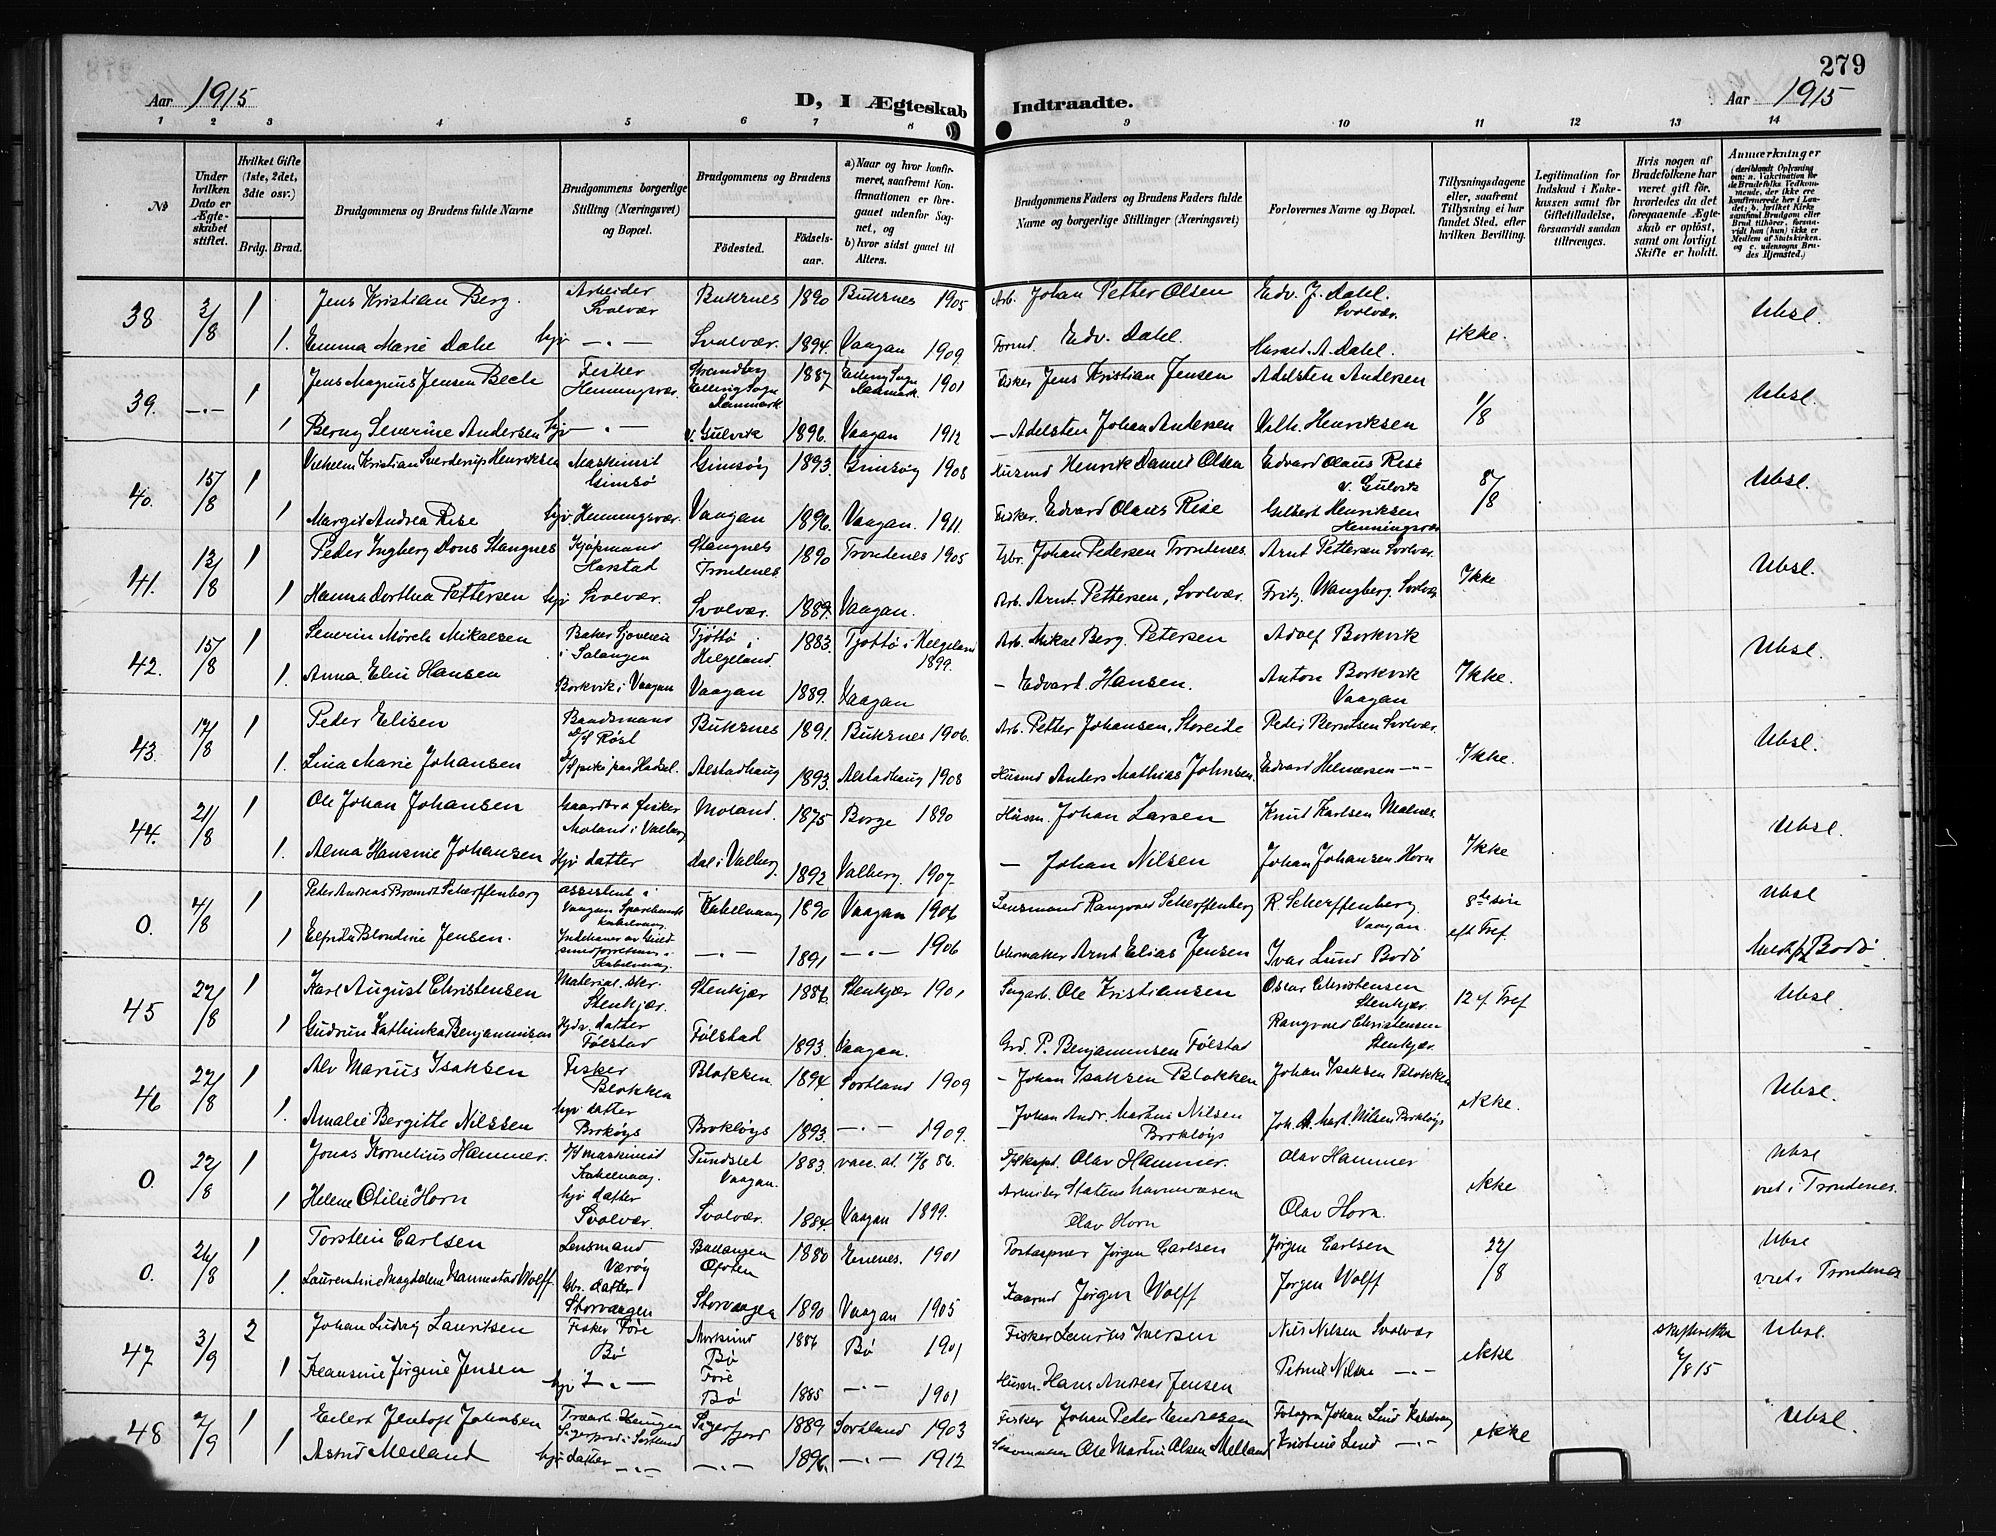 279
Aar 1915
D, I Ægteskab
Indtraadte.
Aar 1915
1 2 3 4 5 6 7 8 9 10 11 12 13 14
No
Under hvilken Dato er Ægteskabet stiftet.
Hvilket Gifte (1ste, 2det, 3die osr.)
Brdg. Brud.
Brudgommens og Brudens fulde Navne
Brudgommens borgerlige Stilling (Næringsvei) og Bopæl.
Brudgommens og Brudens
Fødested.
Fødselsaar.
a) Naar og hvor konfirmeret, saafremt Konfirmationen er foregaaet udenfor Sognet, og
b) hvor sidst gaaet til Alters.
Brudgommens Faders og Brudens Faders fulde Navne og borgerlige Stillinger (Næringsvei)
Forlovernes Navne og Bopæl.
Tillysningsdagene eller, saafremt Tillysning ei har fundet Sted, efter hvilken Bevilling.
Legitimation for Indskud i Enkekassen samt for Giftetilladelse, forsaavidt saadan tiltrænges.
Hvis nogen af Brudefolkene har været gift før, hvorledes da det foregaaende Ægteskab er opløst, samt om lovligt Skifte er holdt.
Anmærkninger
38 3/8 1 Jens Kristian Berg. Arbeider Svolvær Buksnes 1890 Buksnes 1905 Arb. Johan Petter Olsen Edv. J. Dahl. Svolvær. Ubsl.
1. Emma Marie Dahl hjv —„— Svolvær. 1894. Vaagan 1909. Formd. Edv. Dahl. Harald. A. Dahl. ikke.
39. —„— 1 Jens Magnus Jensen Bech Fisker Henningsvær. 1887 1901 Fisker Jens Kristian Jensen Adelsten Andersen Ubsl.
1 Berny Severine Andersen hjv —„— v. Gulvik 1896. Vaagan 1912 — Adelsten Johan Andersen Valh. Henriksen 1/8
40. 15/8 1 Vilhelm Kristian Sverderup Henriksen Maskinist Gimsø Gimsøy 1893. Gimsøy 1908 Husmd Henrik Daniel Olsen Edvard Olaus Rise v. Gulvik 8/8 Ubsl.
1 Margit Andrea Rise hjv. Henningsvær. Vaagan 1896. Vaagan. 1911. Fisker. Edvard Olaus Rise Gilbert Henriksen Henningsvær
41. 13/8 1 Peder Ingberg Dons Stangnes Kjøpmand Harstad Stangnes Trondenes. 1890 Trondenes 1905 Gbr. Johan Pedersen Trondenes. Arnt Pettersen Svolvær. Ubsl.
1 Hanna Dorthea Pettersen hjv Svolvær. Svolvær. 1889. Vaagan. Arb. Arnt Pettersen, Svolvær. Fritz. Wangberg Svolvær Ikke
42. 15/8 1 Severin Mörch Mikalsen i Salangen Tjöttö i Helgeland. 1883. Tjøttö i Helgeland 1899. Arb. Mikal Berg. Petersen Adolf Borkvik Ubsl.
1. Anna. Elin Hansen Borkvik i Vaagan Vaagan 1889. Vaagan — Edvart Hansen. Anton Borkvik Vaagan Ikke.
43. 17/8 1 Peder Elisen Baadsmand D/S Røst Buksnes 1891. Buksnes 1906. Arb. Petter Johansen, Storeide Peder Berntsen Svolvær. Ubsl.
1. Lina Marie Johansen Alstadhaug 1893. Alstadhaug 1908 Husmd Anders Mathias Johnsen. Edvard Helmersen —„— Ikke.
44. 21/8 1 Ole Johan Johansen Gaardbr & fisker Moland i Valberg Moland. 1875 Borge 1890 Husm. Johan Larsen Knut Karlsen Malnes Ubsl.
1. Alma Hansine Johansen hjv datter dal i Valberg. 1892 Valberg. 1907. — Johan Nilsen Johan Johansen. Horn Ikke
0. 7/8 1 Peder Andreas Brandt Scherffenberg assistent i Vaagan Sparebank Kabelvaag. Kabelvaag 1890 Vaagan 1906 Lensmand Rangvald Scherffenberg R. Scherffenberg. Vaagan. Ubsl
1 Elfrida Blondine Jensen. Indehaver av Kabelvaag —„— 1891 —„— 1906 Uhrmaker Arnt Elias Jensen Ivar Lund Bodö eft Tref. Bodö.
45 22/8 1 Karl August Christensen Material. skr. Stenkjær. Stenkjær 1886 Stenkjær 1901 Sagarb. Ole Kristiansen Oscar Christensen Stenkjær 12 ef. Tref Ubsl
1 Gudrun Kathinka Benjaminsen datter Følstad Følstad 1893. Vaagan. Grd. P. Benjaminsen Følstad Rangvald Christensen Stenkjær.
46 22/8 1 Alv Marius Isaksen Fisker Blokken Blokken. 1894 Sortland 1909 — Johan Isaksen Blokken Johan Isaksen Blokken Ubsl.
1. Amalie Bergitte Nilssen hjv datter Brokløys 1893. —„— 1909. — Johan Andr. Martin Nilsen Brokløys Joh. A. Mart. Nilsen Brokløys ikke.
0. 22/8 1 Jonas Kornelius Hammer. Kabelvaag. Pundslet Vaagan. 1883. 86. Olav Hammer. Olav Hammer Ubsl
1 Helene Otilie Horn hjv datter Svolvær. Svolvær. 1884. Vaagan 1899. Arbeider Statens havnvæsen Olav Horn Olav Horn. ikke viet i Trondenes.
0. 26/8 1 Torstein Carlsen Lensmand Værøy Ballangen Ofoten 1880 Evenes. 1901 Postaapner Jørgen Carlsen Jørgen Carlsen 22/8 Ubsl
1. Laurentine Magdalene Kannestad Wolff. datter Storvaagen Storvaagen 1890 Vaagan 1905 Kaarmd Jørgen Wolff Jørgen Wolff viet i Trondenes
47 3/9 2 Johan Ludvig Lauritsen Fisker Føre Bø Bø 1886 Bø 1901 Fisker Laurits Iversen Nils Nilsen Svolvær 2/8 15 Ubsl.
1 Klausine Jørgine Jensen hjv —„— Føre Bø 1885 —„— 1901 Husm. Hans Andreas Jensen Petrine Nilsen —„— ikke
48 7/9 1 Eilert Jentoft Johnsen Sigerfjord i Sortland Sigerfjord 1889 Sortland 1903 Fisker Johan Peder Endresen Fotogra Johan Lund Kabelvaag Ubsl.
1 Astrid Meiland hjv datter —„— —„— 1896. —„— 1912 Ole Martin Olsen Melland Kristine Lund —„— ikke